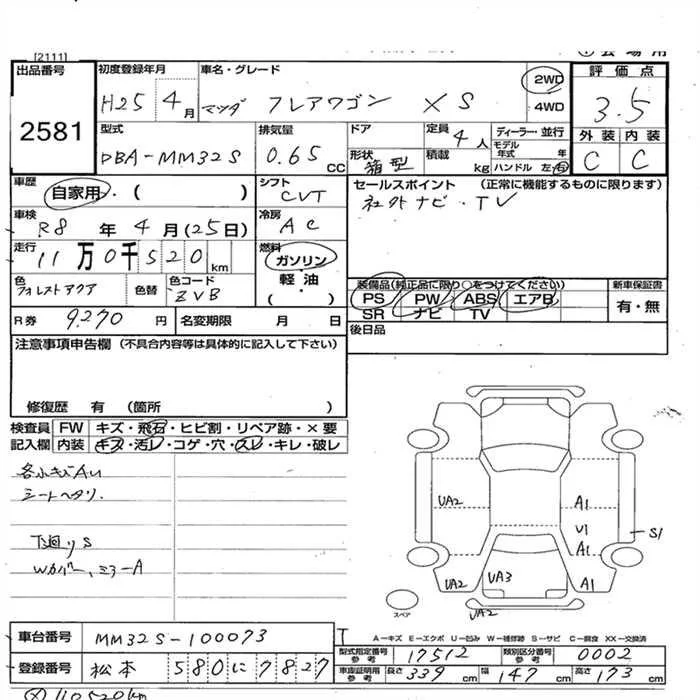 [2111]
出品番号 2581
初度登録年月 H25 4月
車名・グレード マツダ フレアワゴン XS
2WD 4WD
評価点 3.5
外装 C 内装 C
型式 DBA-MM32S
排気量 0.65 CC
ドア
形状 箱型
定員 4人
積載 kg
ディーラー・並行
モデル年式 年
ハンドル 左・右
車歴 自家用・( )
シフト CVT
セールスポイント (正常に機能するものに限ります)
社外ナビ・TV
車検 R8年 4月(25日)
冷房 AC
走行 11万0千520km
燃料 ガソリン・軽油・( )
色 フォレストアクア
色替
色コード ZVB
装備品(純正品に限り○をつけてください)
PS PW ABS エアB
SR ナビ TV
新車保証書 有・無
R券 9,270円
名変期限 月 日
後日品
注意事項申告欄 (不具合内容等は具体的に記入して下さい)
修復歴 有 (箇所 )
検査員 FW キズ・飛石・ヒビ割・リペア跡・×要
記入欄 内装 キズ・汚レ・コゲ・穴・スレ・キレ・破レ
各小キズAU
シートヘタリ.
下廻りS
Wカバー、ミラーA
UA2 A1
U1 S1
A1
UA2 UA3 A1
UA2
スペア
A―キズ E―エクボ U―凹み W―補修跡 S―サビ C―腐食 XX―交換済
車台番号 MM32S-100073
型式指定番号 参考 17512
類別区分番号 参考 0002
登録番号 松本 580に7827
車庫証明用 参考 長さ 339cm 幅 147cm 高さ 173cm
110520km